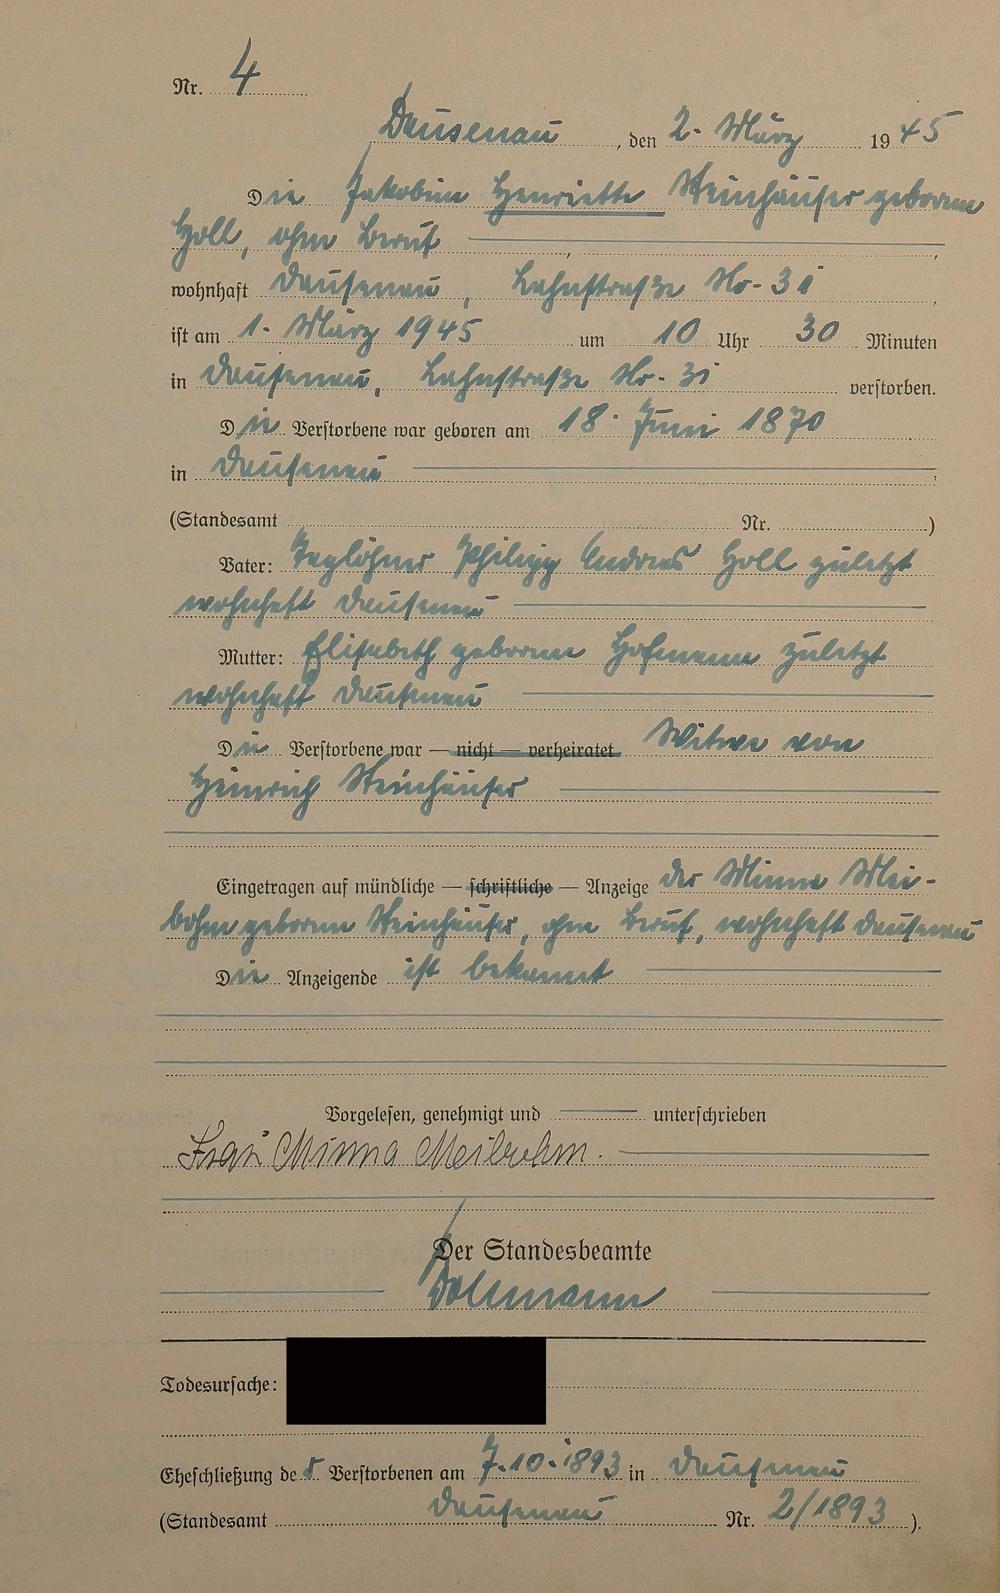 Nr. 4
Dausenau, den 2. März 1945
Die Jakobine Henriette Steinhäuser geborene
Holl, ohne Beruf
wohnhaft Dausenau, Lahnstraße Nr. 31
ist am 1. März 1945 um 10 Uhr 30 Minuten
in Dausenau, Lahnstraße Nr. 31 verstorben.
Die Verstorbene war geboren am 18. Juni 1870
in Dausenau
(Standesamt Nr. )
Vater: Taglöhner Philipp Andreas Holl zuletzt
wohnhaft Dausenau
Mutter: Elisabeth geborene Hofmann zuletzt
wohnhaft Dausenau
Die Verstorbene war — nicht — verheiratet Witwe von
Heinrich Steinhäuser
Eingetragen auf mündliche — schriftliche — Anzeige der Minna Mei-
bohm geborene Steinhäuser, ohne Beruf, wohnhaft Dausenau
Die Anzeigende ist bekannt
Vorgelesen, genehmigt und unterschrieben
Frau Minna Meibohm.
Der Standesbeamte
Todesursache:
Eheschließung der Verstorbenen am 7.10.1893 in Dausenau
(Standesamt Dausenau Nr. 2/1893).